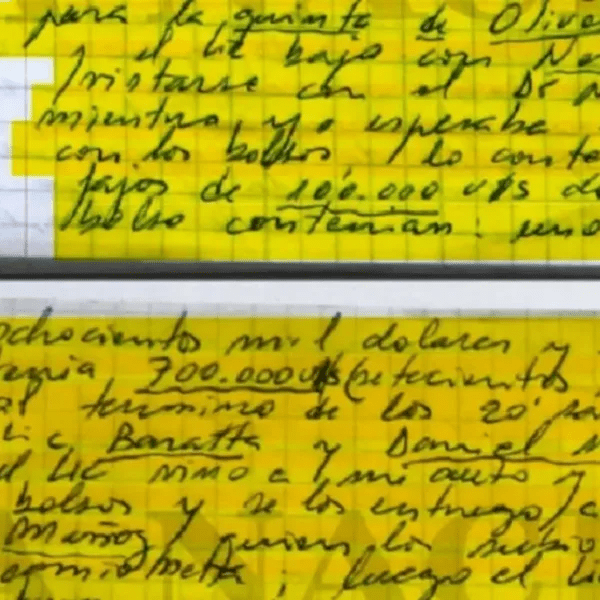 para la quinta de Olive
y el Lic bajo con Ne
mientras yo esperaba
con los bolsos, lo conte
fajos de 100.000 u$s do
bolso contenian: uno
ochocientos mil dolares y
tenia 700.000 u$s (setecientos
al termino de los 20'
Lic Baratta y Daniel M
el Lic vino a mi auto y
bolsos y se los entrego a
Muñoz, quien los subio
camioneta, luego el Li